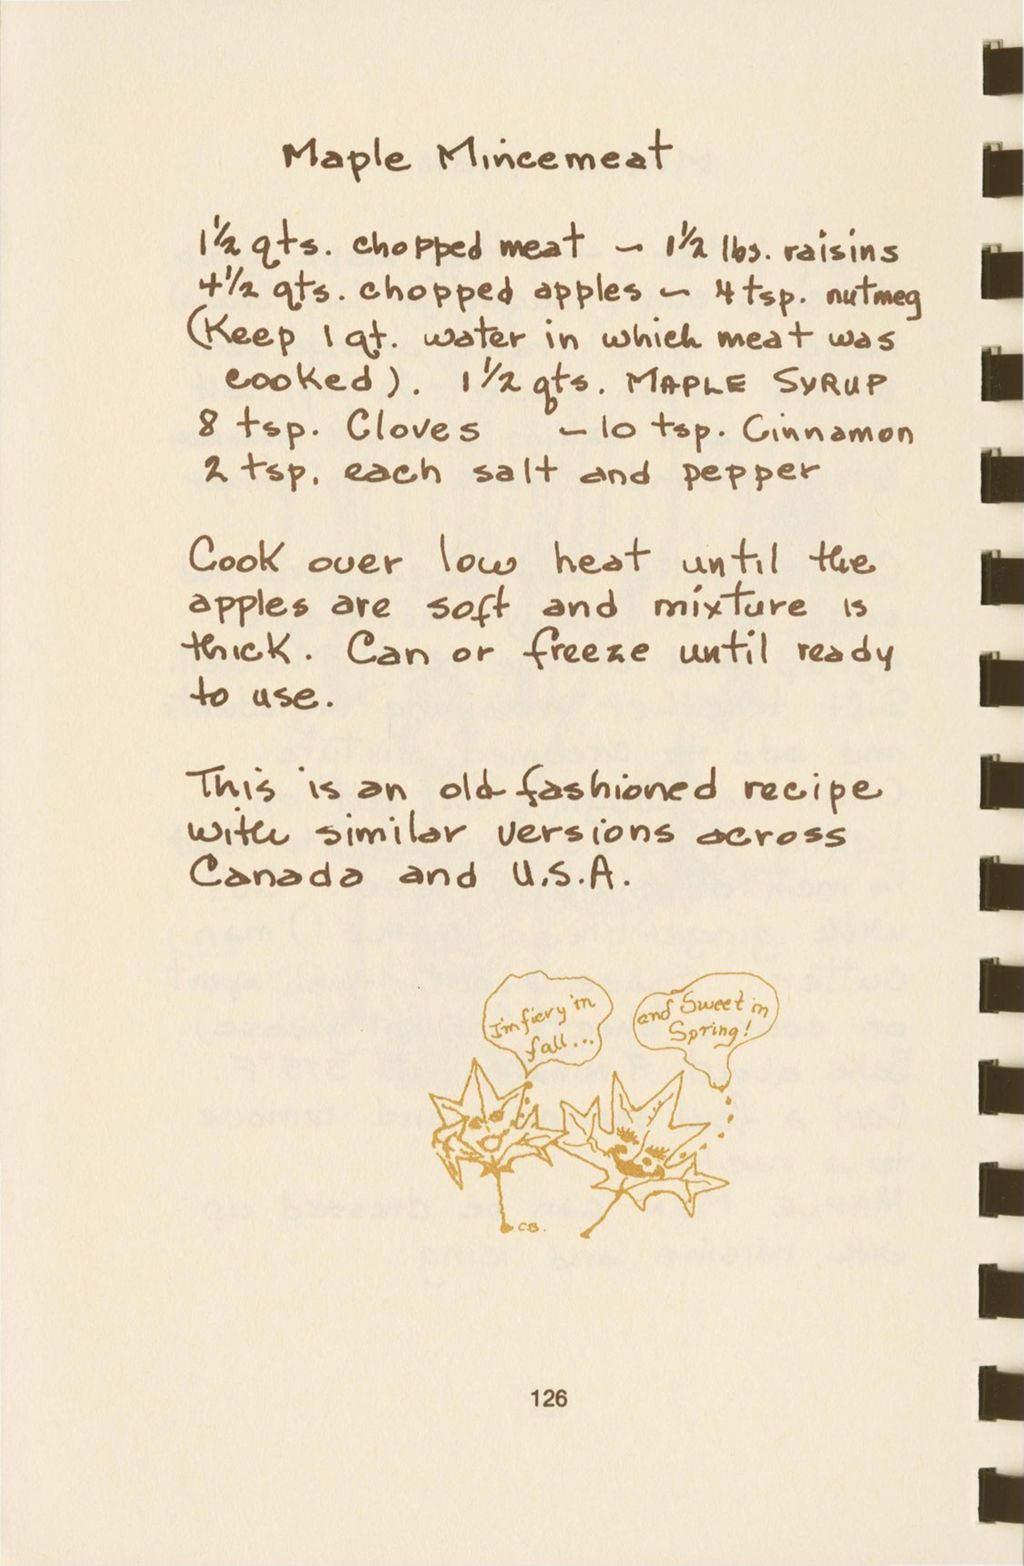 Maple Mincemeat
1½ qts. chopped meat — 1½ lbs. raisins
4½ qts. chopped apples — 4 tsp. nutmeg
(Keep 1 qt. water in which meat was
cooked). 1½ qts. MAPLE SYRUP
8 tsp. Cloves — 10 tsp. Cinnamon
2 tsp. each salt and pepper
Cook over low heat until the
apples are soft and mixture is
thick. Can or freeze until ready
to use.
This is an old-fashioned recipe
with similar versions across
Canada and U.S.A.
I'm fiery in
fall...
and Sweet in
Spring!
CB.
126